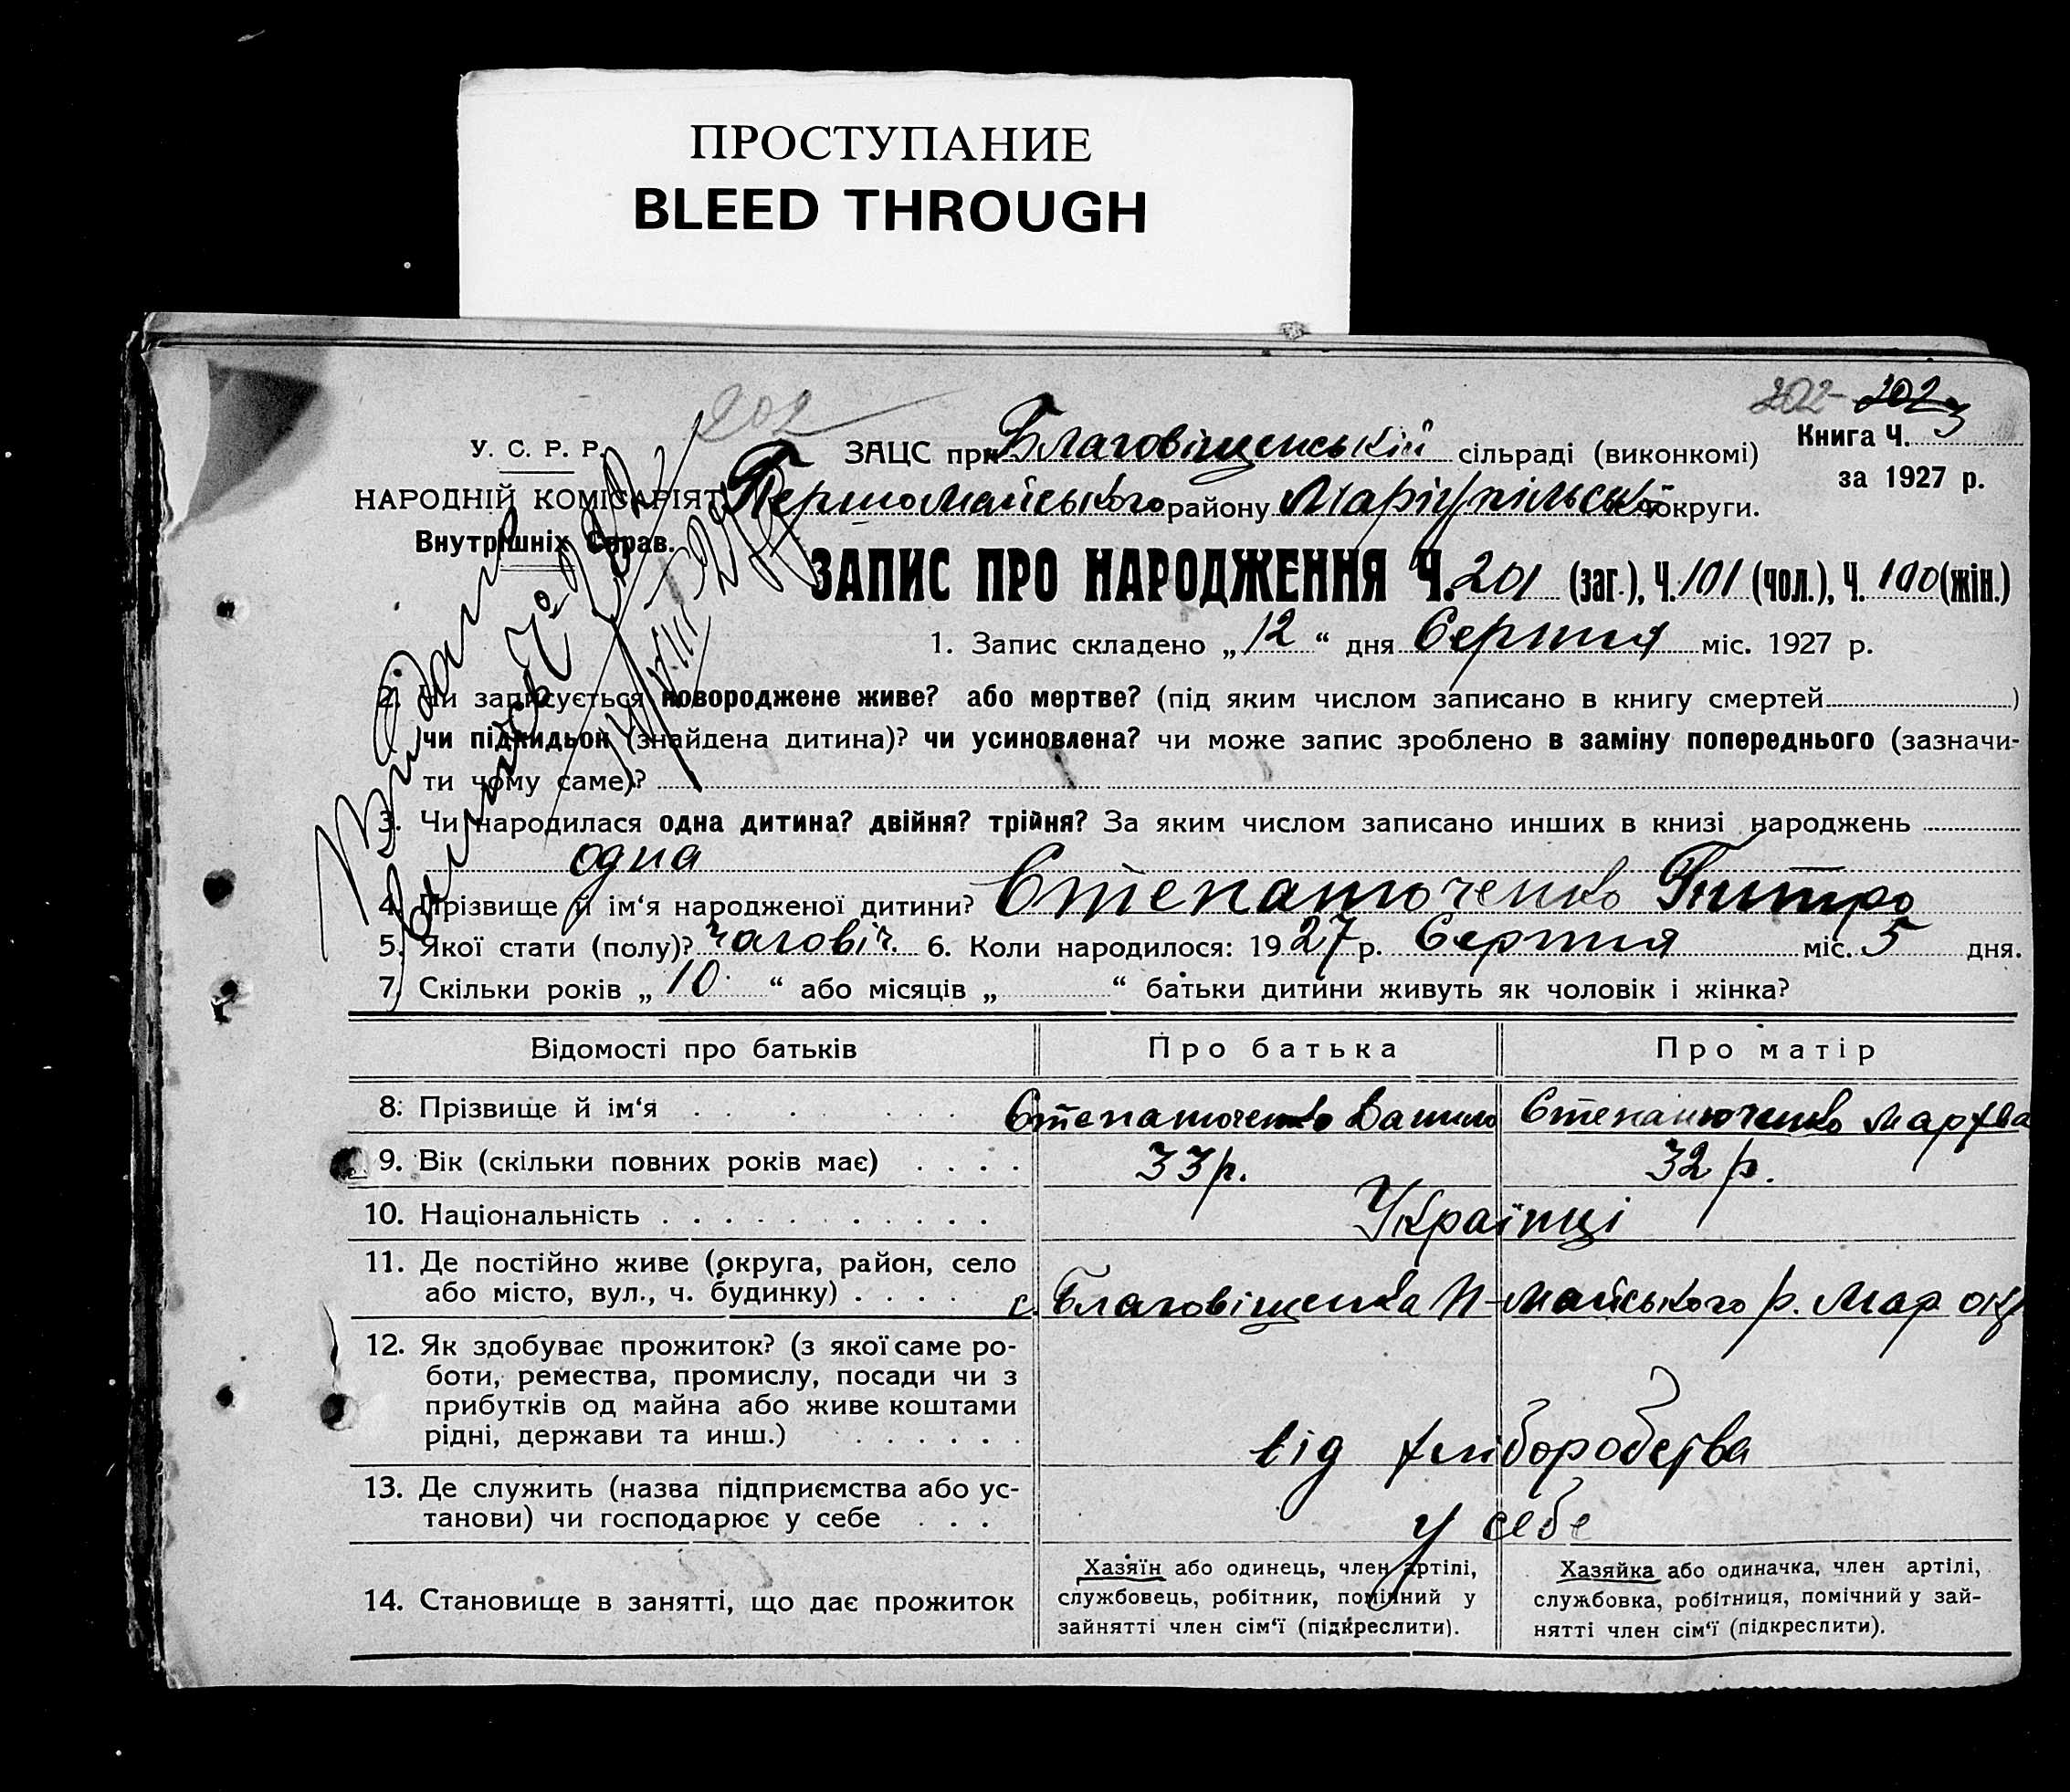 ПРОСТУПАНИЕ
BLEED THROUGH
202
202 202
У. С. Р. Р.
НАРОДНІЙ КОМІСАРІЯТ
Внутрішніх Справ.
ЗАЦС при Благовіщенській сільраді (виконкомі)
Книга Ч. 3
за 1927 р.
Першомайського району Маріупільської округи.
ЗАПИС ПРО НАРОДЖЕННЯ Ч. 201 (заг.), Ч. 101 (чол.), Ч. 100 (жін.)
1. Запис складено „12“ дня Серпня міс. 1927 р.
Видано
2. Чи записується новороджене живе? або мертве? (під яким числом записано в книгу смертей )
чи підкидьок (знайдена дитина)? чи усиновлена? чи може запис зроблено в заміну попереднього (зазначи-
ти чому саме)?
3. Чи народилася одна дитина? двійня? трійня? За яким числом записано инших в книзі народжень
одна
4. Прізвище й ім‘я народженої дитини? Степанюченко Дмитро
5. Якої стати (полу)? чаловіч. 6. Коли народилося: 1927 р. Серпня міс. 5 дня.
7. Скільки років „10“ або місяців „ “ батьки дитини живуть як чоловік і жінка?
Відомості про батьків Про батька Про матір
8. Прізвище й ім‘я Степанюченко Данило Степанюченко Марфва
9. Вік (скільки повних років має) 33 р. 32 р.
10. Національність Українці
11. Де постійно живе (округа, район, село
або місто, вул., ч. будинку) с. Благовіщенка П-майського р. Мар. окр
12. Як здобуває прожиток? (з якої саме ро-
боти, ремества, промислу, посади чи з
прибутків од майна або живе коштами
рідні, держави та инш.) від хліборобства
13. Де служить (назва підприємства або ус-
танови) чи господарює у себе у себе
14. Становище в занятті, що дає прожиток
Хазяїн або одинець, член артілі,
службовець, робітник, помічний у
зайнятті член сім‘ї (підкреслити).
Хазяйка або одиначка, член артілі,
службовка, робітниця, помічний у зай-
нятті член сім‘ї (підкреслити).